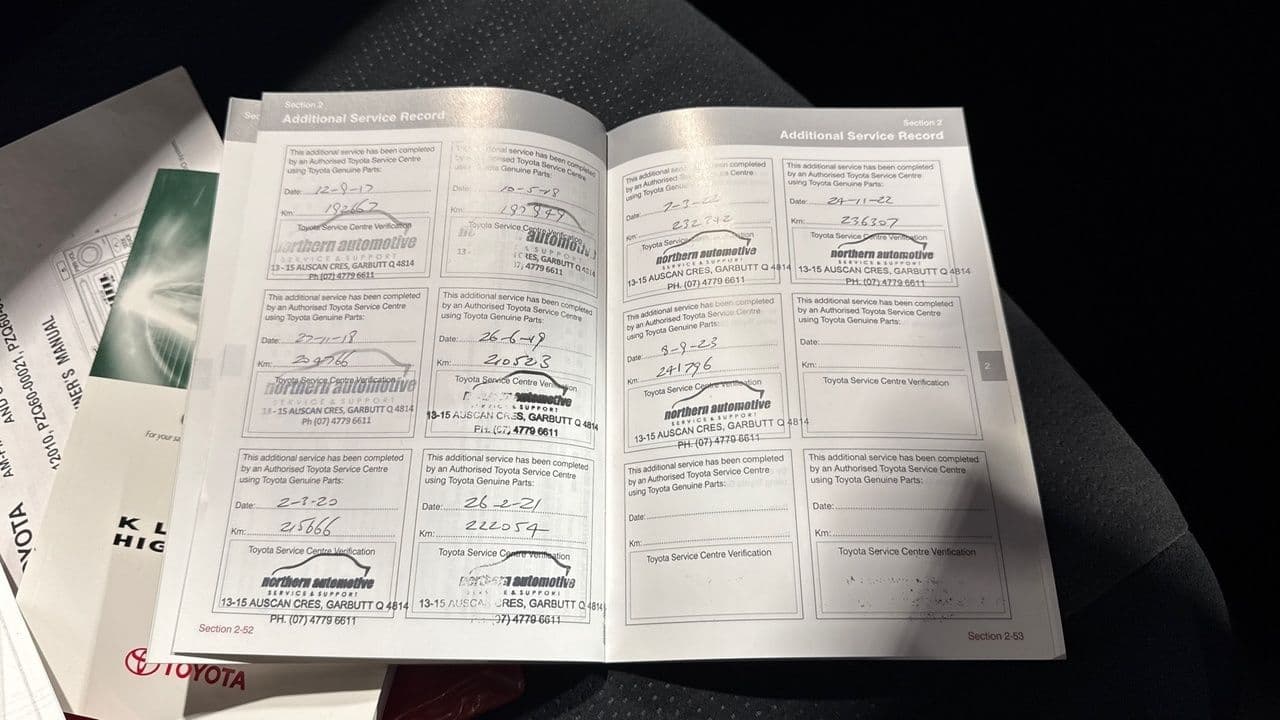 Section 2
Additional Service Record
This additional service has been completed
by an Authorised Toyota Service Centre
using Toyota Genuine Parts:
Date: 12-9-17
Km: 192667
Toyota Service Centre Verification
northern automotive
SERVICE & SUPPORT
13-15 AUSCAN CRES, GARBUTT Q 4814
Ph (07) 4779 6611
service has been completed
Toyota Service Centre
using Toyota Genuine Parts:
Date: 10-5-18
Km: 197949
Toyota Service Centre Verification
automotiv
SUPPORT
13-
CRES, GARBUTT Q 4814
4779 6611
This additional service has been completed
by an Authorised Toyota Service Centre
using Toyota Genuine Parts:
Date: 27-11-18
Km: 204766
Toyota Service Centre Verification
northern automotive
SERVICE & SUPPORT
13-15 AUSCAN CRES, GARBUTT Q 4814
Ph (07) 4779 6611
This additional service has been completed
by an Authorised Toyota Service Centre
using Toyota Genuine Parts:
Date: 26-6-19
Km: 210523
Toyota Service Centre Verification
automotive
& SUPPORT
13-15 AUSCAN CRES, GARBUTT Q 4814
PH. (07) 4779 6611
This additional service has been completed
by an Authorised Toyota Service Centre
using Toyota Genuine Parts:
Date: 2-3-20
Km: 215666
Toyota Service Centre Verification
northern automotive
SERVICE & SUPPORT
13-15 AUSCAN CRES, GARBUTT Q 4814
PH. (07) 4779 6611
This additional service has been completed
by an Authorised Toyota Service Centre
using Toyota Genuine Parts:
Date: 26-2-21
Km: 222054
Toyota Service Centre Verification
automotive
& SUPPORT
13-15 CRES, GARBUTT Q 4814
07) 4779 6611
Section 2-52
Section 2
Additional Service Record
This additional been completed
by an Authorised Centre
using Toyota
Date: 7-3-22
Km: 232742
Toyota Service
northern automotive
SERVICE & SUPPORT
13-15 AUSCAN CRES, GARBUTT Q 4814
PH. (07) 4779 6611
This additional service has been completed
by an Authorised Toyota Service Centre
using Toyota Genuine Parts:
Date: 24-11-22
Km: 236307
Toyota Service Centre Verification
northern automotive
SERVICE & SUPPORT
13-15 AUSCAN CRES, GARBUTT Q 4814
PH. (07) 4779 6611
This additional service has been completed
by an Authorised Toyota Service Centre
using Toyota Genuine Parts:
Date: 8-9-23
Km: 241796
Toyota Service Centre Verification
northern automotive
SERVICE & SUPPORT
13-15 AUSCAN CRES, GARBUTT Q 4814
PH. (07) 4779 6611
This additional service has been completed
by an Authorised Toyota Service Centre
using Toyota Genuine Parts:
Date:
Km:
Toyota Service Centre Verification
This additional service has been completed
by an Authorised Toyota Service Centre
using Toyota Genuine Parts:
Date:
Km:
Toyota Service Centre Verification
This additional service has been completed
by an Authorised Toyota Service Centre
using Toyota Genuine Parts:
Date:
Km:
Toyota Service Centre Verification
2
Section 2-53
For your sa
K L
HIG
TOYOTA